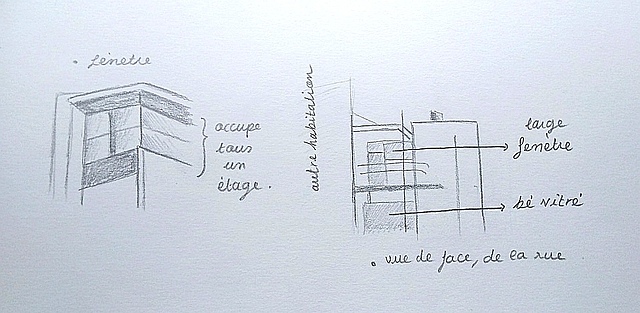 . fenêtre
occupe
tous
un
étage.
autre habitation
large
fenêtre
bé vitré
. vue de face, de la rue